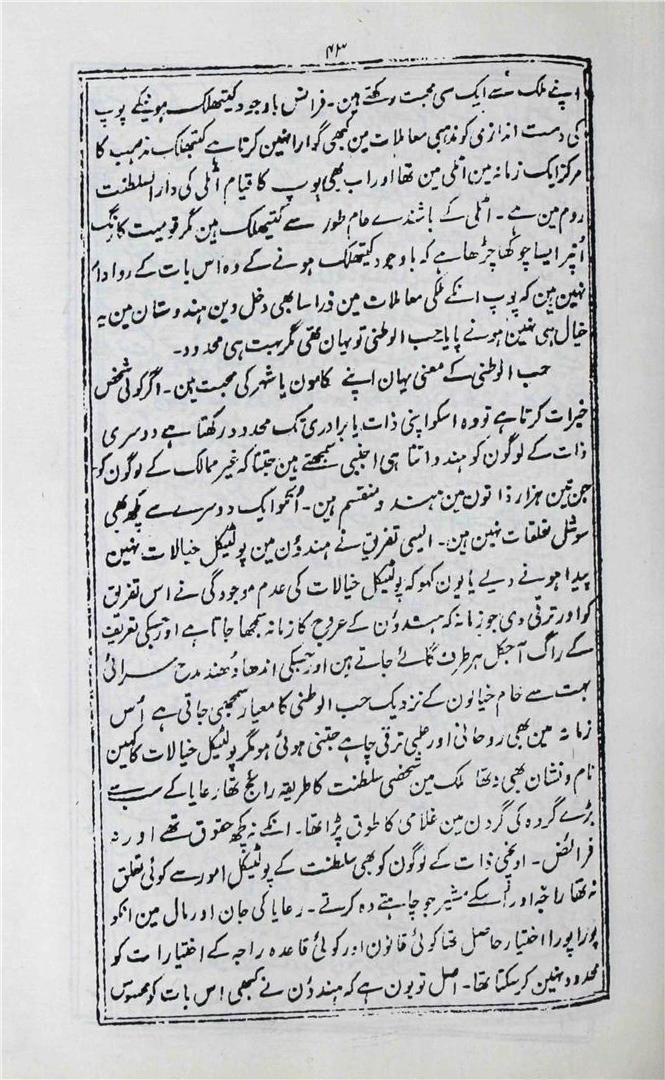 ۴۳
اپنے ملک سے ایک سی محبت رکھتے ہین۔ فرانس باوجود کیتھلک ہونیکے پوپ
کی دست اندازی کو مذہبی معاملات مین کبھی گوارا نہین کرتا ہے کتھلک مذہب کا
مرکز ایک زمانہ مین اٹلی مین تھا اور اب بھی پوپ کا قیام اٹلی کی دارالسلطنت
روم مین ہے۔ اٹلی کے باشندے عام طور سے کیتھلک ہین مگر قومیت کا رنگ
اُنپر ایسا چوکھا چڑھا ہے کہ باوجود کیتھلک ہونے کے وہ اس بات کے روادار
نہین ہین کہ پوپ انکے ملکی معاملات مین ذرا سا بھی دخل دین ہندوستان مین یہ
خیال ہی نہین ہونے پایا حب الوطنی تو یہان تھی مگر بہت ہی محدود۔
حب الوطنی کے معنی یہان اپنے گامون یا شہر کی محبت ہین۔ اگر کوئی شخص
خیرات کرتا ہے تو وہ اسکو اپنی ذات یا برادری تک محدود رکھتا ہے دوسری
ذات کے لوگون کو ہندو اتنا ہی اجنبی سمجھتے ہین جتنا کہ غیر ممالک کے لوگون کو
جن تین ہزار ذاتون مین ہندو منقسم ہین۔ اُنکو ایک دوسرے سے کچھ بھی
سوشل تعلقات نہین ہین۔ ایسی تفریق نے ہندوُن مین پولٹیکل خیالات نہین
پیدا ہونے دیے یا یون کہو کہ پولٹیکل خیالات کی عدم موجودگی نے اس تفریق
کو اور ترقی دی جو زمانہ کہ ہندوُن کے عروج کا زمانہ سمجھا جاتا ہے اور جسکی تعریف
کے راگ آجکل ہر طرف گائے جاتے ہین اور جسکی اندھا دُھند مدح سرائی
بہت سے خام خیالون کے نزدیک حب الوطنی کا معیار سمجھی جاتی ہے اُس
زمانہ مین بھی روحانی اور علمی ترقی چاہے جتنی ہوئی ہو مگر پولٹیکل خیالات کا کہین
نام و نشان بھی نہ تھا ملک مین شخصی سلطنت کا طریقہ رائج تھا رعایا کے سب سے
بڑے گروہ کی گردن مین غلامی کا طوق پڑا تھا۔ انکے نہ کچھ حقوق تھے اور نہ
فرائض۔ اونچی ذات کے لوگون کو بھی سلطنت کے پولٹیکل امور سے کوئی تعلق
نہ تھا راجہ اور اُسکے مشیر جو چاہتے وہ کرتے۔ رعایا کی جان اور مال مین انکو
پورا پورا اختیار حاصل تھا کوئی قانون اور کوئی قاعدہ راجہ کے اختیارات کو
محدود نہین کر سکتا تھا۔ اصل تو یون ہے کہ ہندوُن نے کبھی اس بات کو محسوس